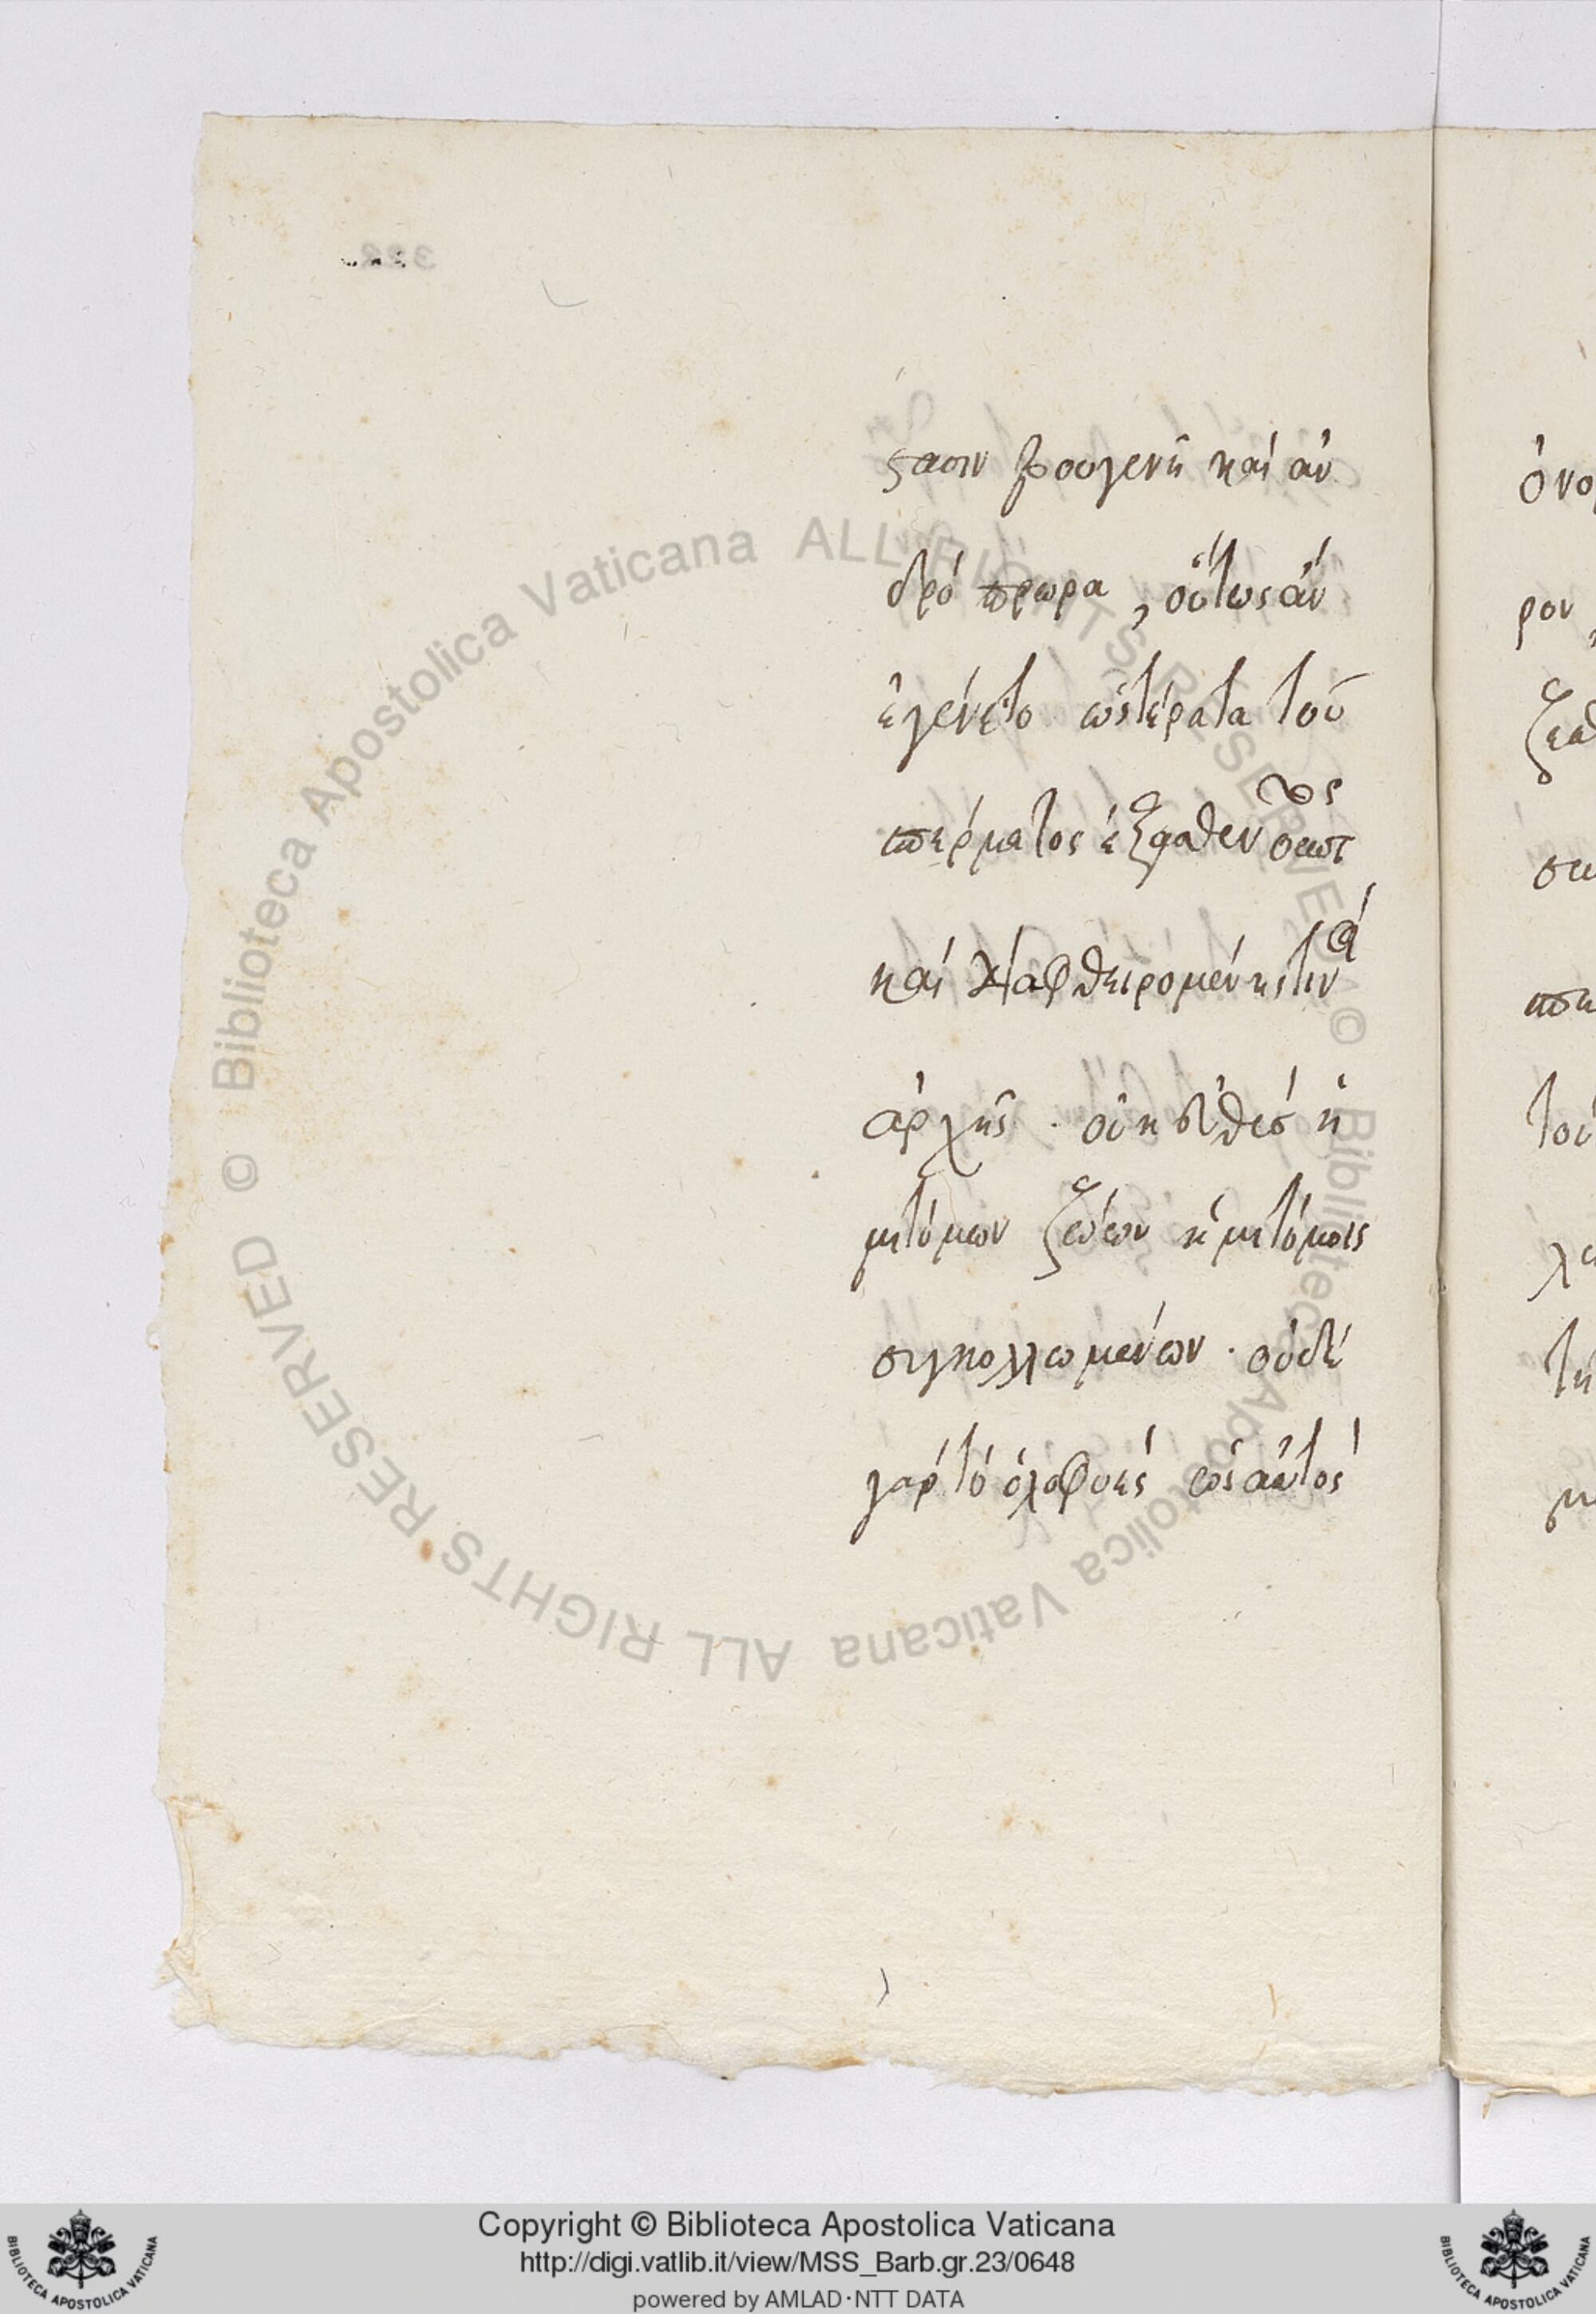 στασιν βουγενῆ καὶ ἀν
δρό πρωρα, οὕτως ἄν
ἐγένετο ὡς τέρατα τοῦ
σπέρματος ἔξωθεν
καὶ διαφθειρομένης τινά
ἀρχῆς. οὐ συνθέσῃ
μὴ τόμων ζώων ἡμιτόμοις
συγκολλωμένων. οὐδὲ
γὰρ τὸ ὁλοφυὲς ὡς αὐτὸς
ὀνο
ρον,
ζεα
τοῦ
322
© Biblioteca Apostolica Vaticana ALL RIGHTS RESERVED © Biblioteca Apostolica Vaticana ALL RIGHTS RESERVED
Copyright © Biblioteca Apostolica Vaticana
http://digi.vatlib.it/view/MSS_Barb.gr.23/0648
powered by AMLAD·NTT DATA
BIBLIOTECA APOSTOLICA VATICANA
BIBLIOTECA APOSTOLICA VATICANA